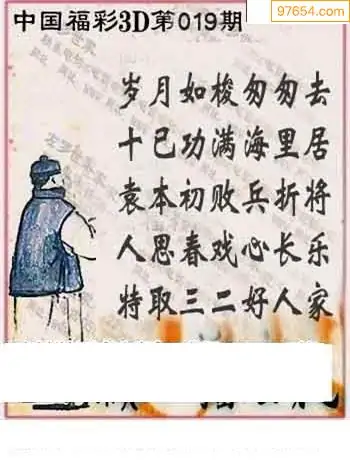 97654.com
中国福彩3D第019期
岁月如梭匆匆去
十已功满海里居
袁本初败兵折将
人思春戏心长乐
特取三二好人家